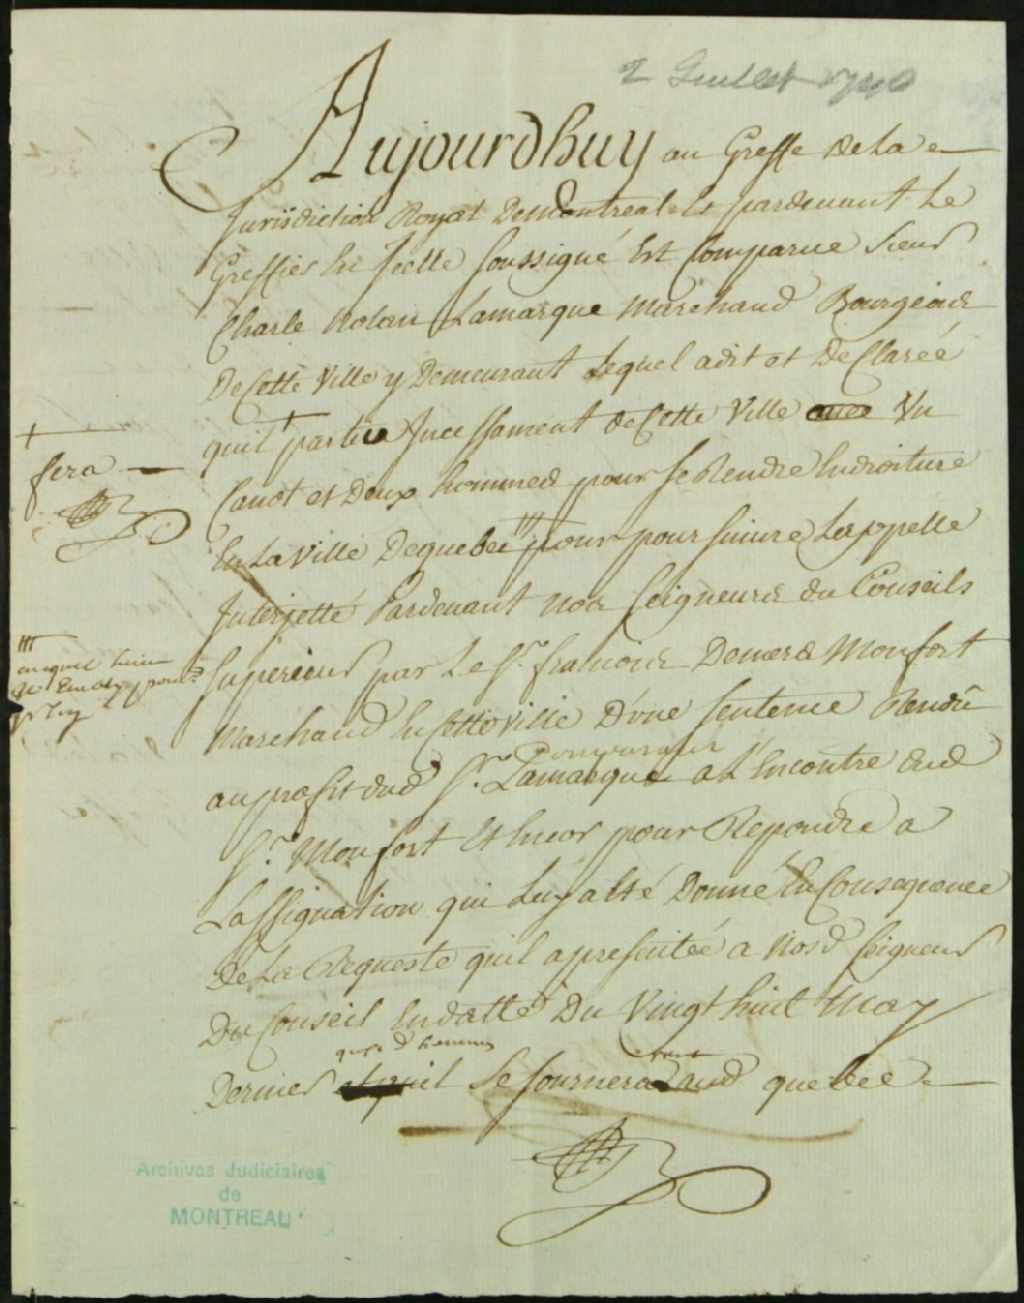 2 Juillet 1740
Aujourdhuy au Greffe de La
Jurisdiction Royal De montreal Et pardevant Le
Greffier En Icelle soussigné Est Comparue Sieur
Charle Nolan Lamarque Marchand Bourgeois
De cette Ville y Demeurant Lequel a dit et Declarée
quil partira Incessament de Cette Ville avec Un
Canot et Deux hommes pour Se Rendre En droiture
En La Ville De quebec pour poursuivre Lappelle
Interjetté Pardevant nos Seigneurs du Conseils
Superieur par Le Sr. francois Demers Monfort
Marchand En Cette Ville D'une Sentence Rendû
au profit dud Sr. Lamarque a L'Encontre dud
Comparant
Sr. Monfort Et pour Repondre a
Lassignation qui Luy a Esté Donné En Consequence
De La Requeste quil a presentée a Nosd Seigneurs
Du Conseil En datte Du Vingt huit May
Dernier Se Journera aud quebec
sera
Archives Judiciaires
de
MONTREAL